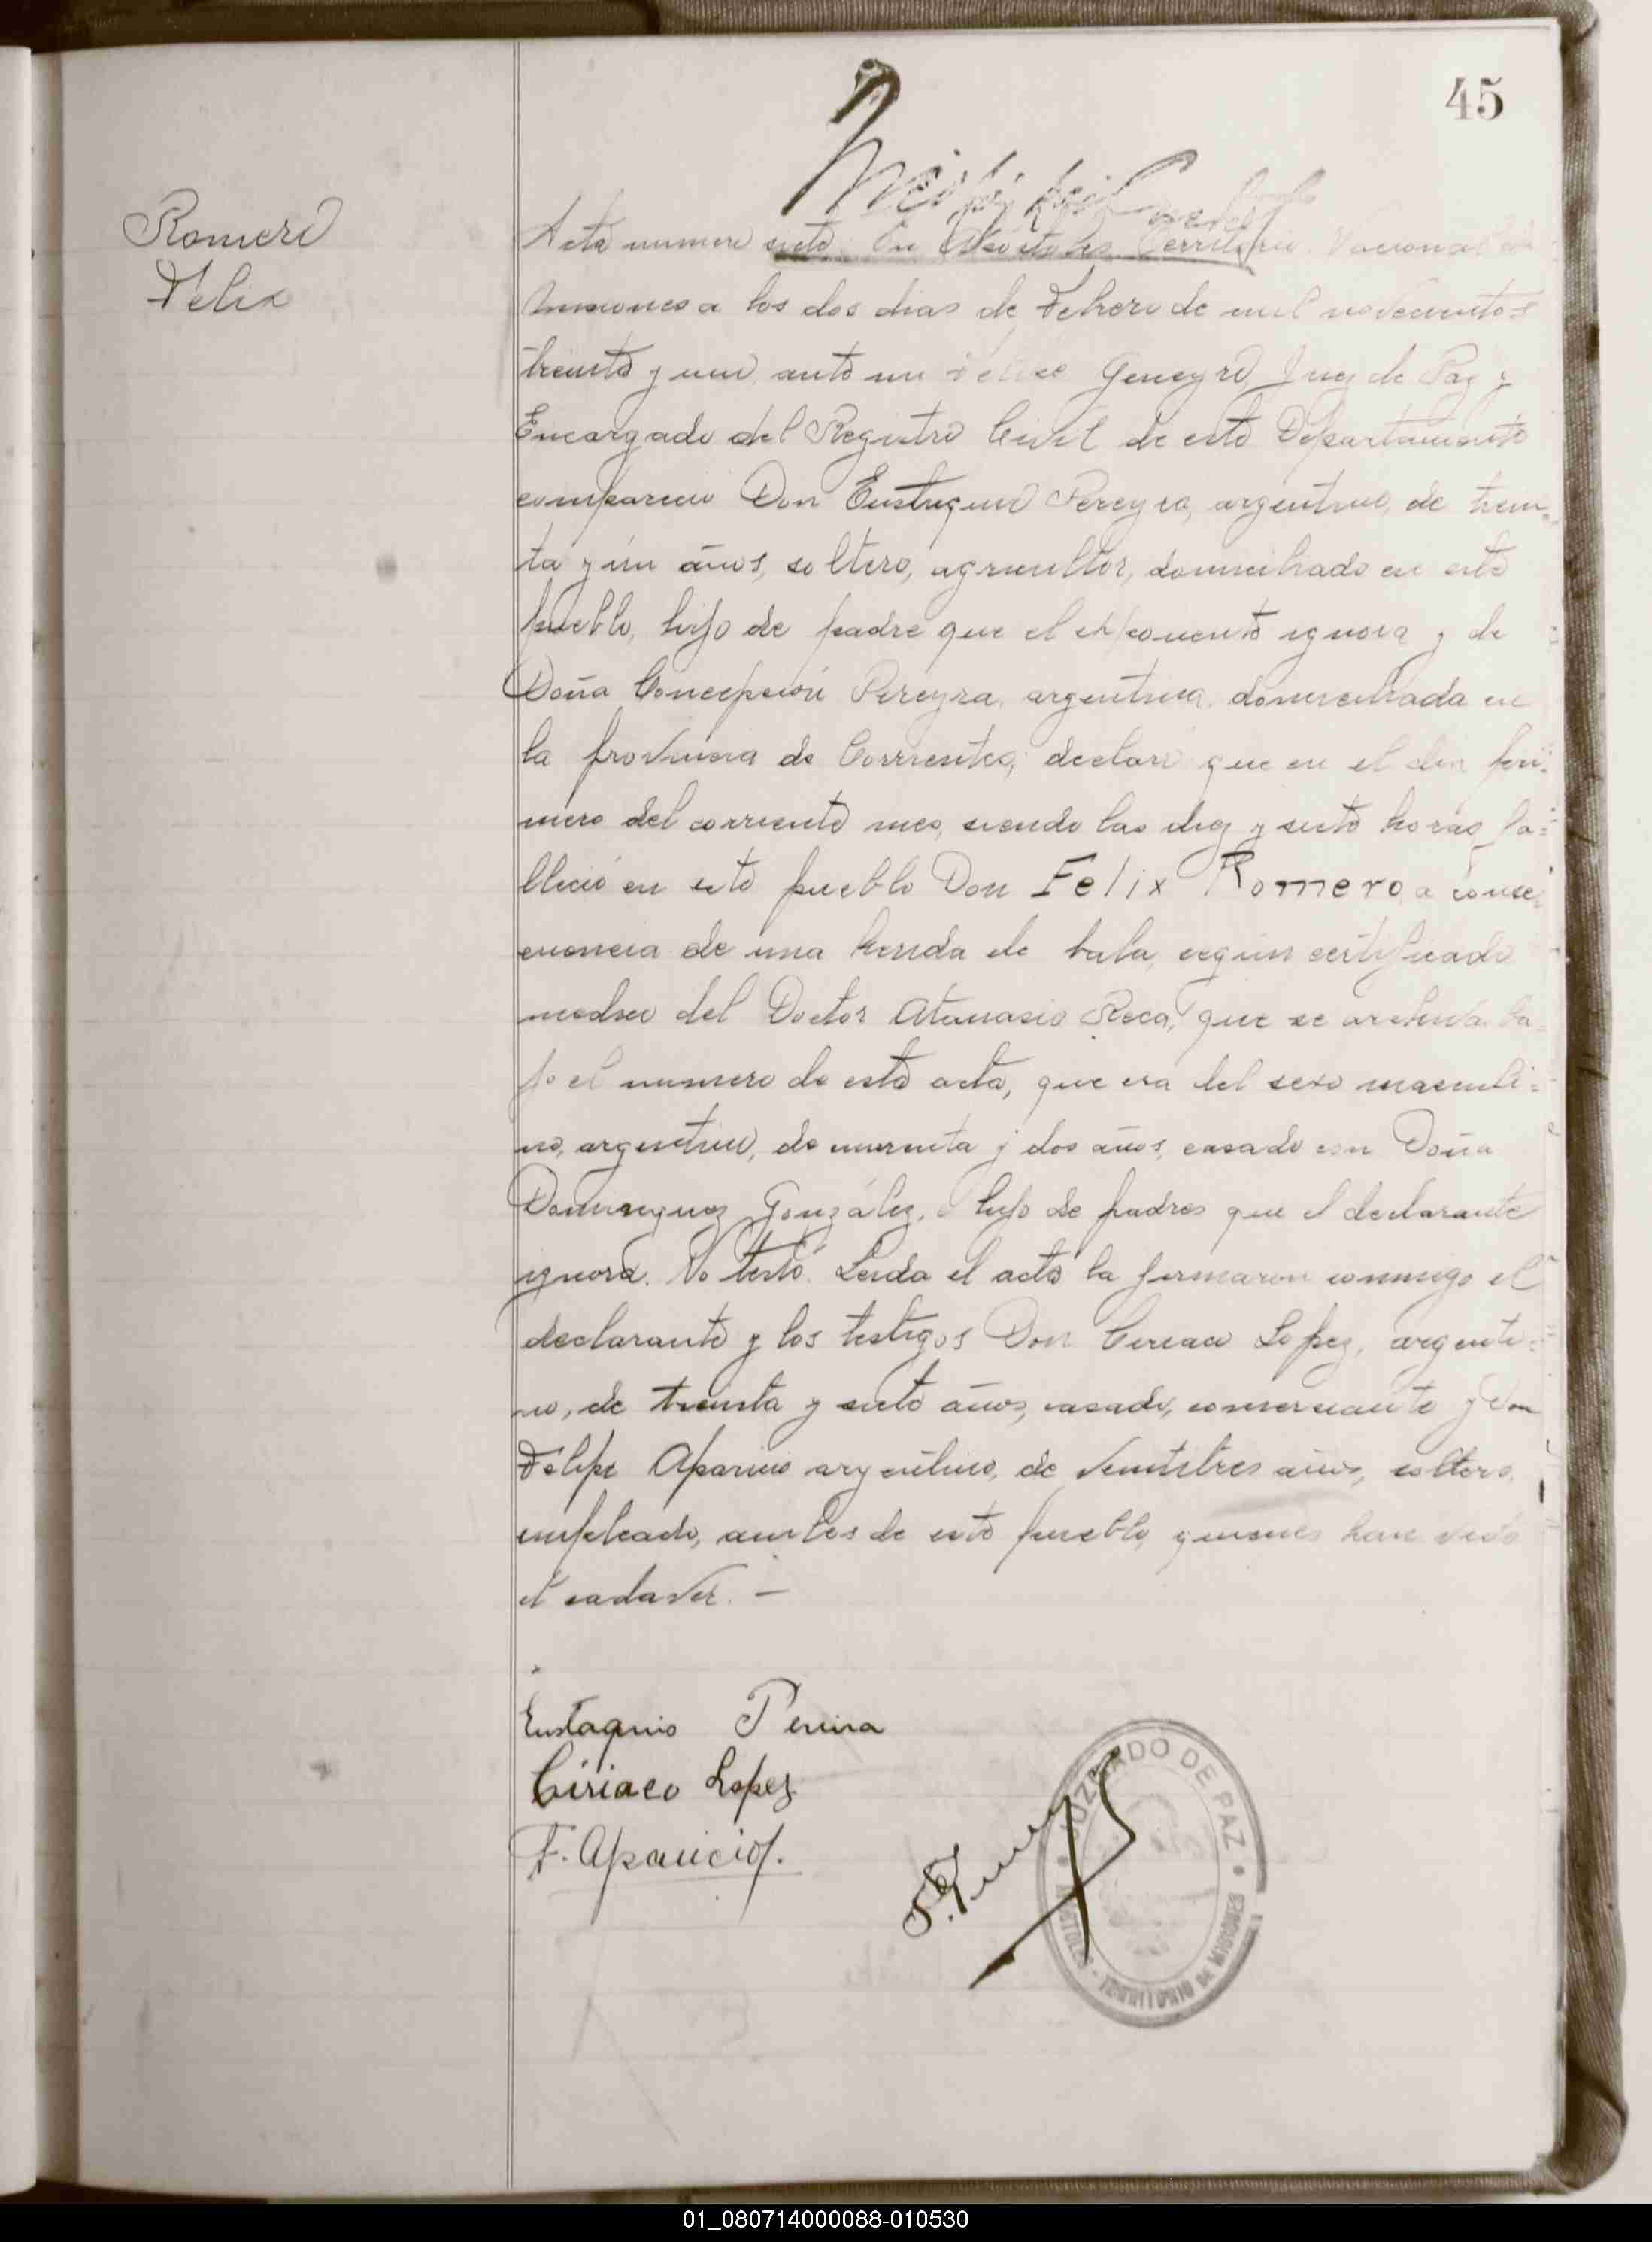 45
Romero
Felix
Acta numero siete. En Apóstoles Territorio Nacional de
Misiones a los dos dias de Febrero de mil novecientos
treinta y uno, ante mi Geneyro, Juez de Paz y
Encargado del Registro Civil de este Departamento
comparecio Don Eustaquio Pereyra, argentino, de trein=
ta y un años, soltero, agricultor, domiciliado en este
pueblo, hijo de padre que el exponente ignora y de
Doña Concepción Pereyra, argentina, domiciliada en
la provincia de Corrientes, declaró que en el dia pri=
mero del corriente mes, siendo las diez y siete horas fa=
llecio en este pueblo Don Felix Romero, a conse=
cuencia de una herida de bala, según certificado
medico del Doctor Atanasio Roca, que se archiva ba=
jo el numero de esta acta, que era del sexo masculi=
no, argentino, de cuarenta y dos años, casado con Doña
Dominguez González, hijo de padres que el declarante
ignora. No testó. Leida el acta la firmaron conmigo el
declarante y los testigos Don Ciriaco Lopez, argenti=
no, de treinta y siete años, casado, comerciante y Don
Felipe Aparicio argentino, de veintitres años, soltero,
empleado, ambos de este pueblo, quienes han visto
el cadaver. —
Eustaquio Pereira
Ciriaco Lopez
F. Aparicio.
JUZGADO DE PAZ
APOSTOLES - TERRITORIO DE MISIONES
01_080714000088-010530